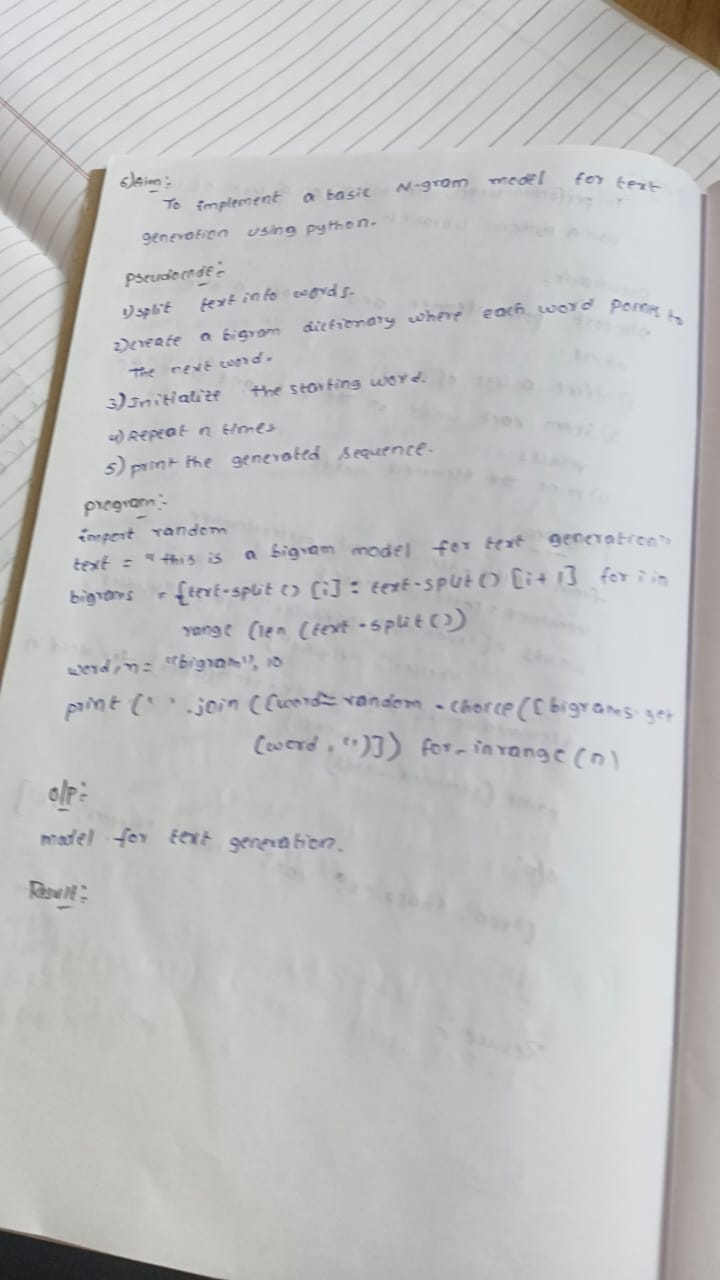 6) Aim:
To implement a basic N-gram model for text
generation using python.
pseudocode:
1) split text into words.
2) create a bigram dictionary where each word points to
the next word.
3) Initialize the starting word.
4) Repeat n times
5) print the generated sequence.
program:
import random
text = "this is a bigram model for text generation"
bigrams = {text.split () [i] : text.split () [i+1] for i in
range (len (text.split())
word, n = "bigram", 10
print (' '.join ((word:= random.choice ([bigrams.get
(word, "")]) for _ in range (n)
o/p:
model for text generation.
Result: